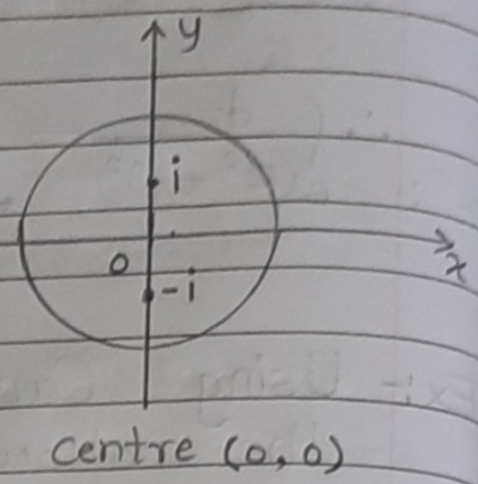 y
i
0
x
-i
centre (0,0)